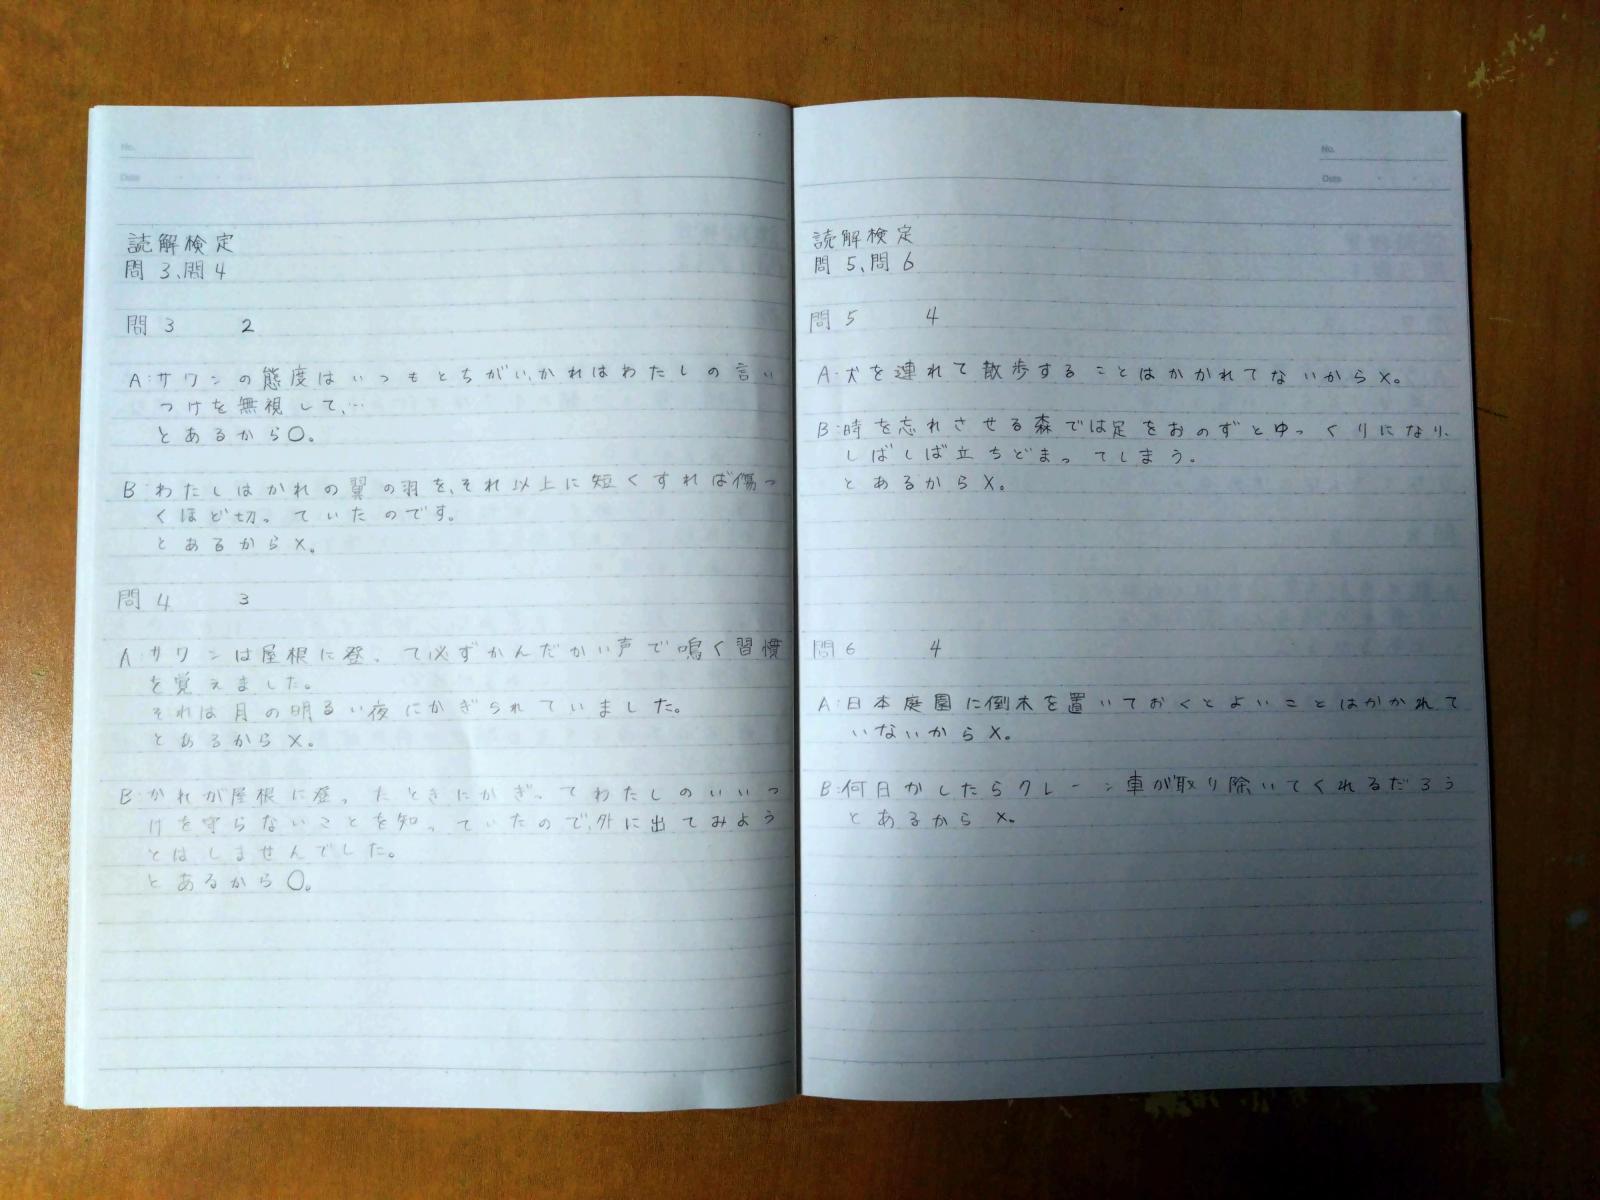 No.
Date
読解検定
問3、問4
問3 2
A:サワンの態度はいつもとちがい、かれはわたしの言い
つけを無視して、…
とあるから○。
B:わたしはかれの翼の羽を、それ以上に短くすれば傷つ
くほど切っていたのです。
とあるから×。
問4 3
A:サワンは屋根に登って必ずかんだかい声で鳴く習慣
を覚えました。
それは月の明るい夜にかぎられていました。
とあるから×。
B:かれが屋根に登ったときにかぎってわたしのいいつ
けを守らないことを知っていたので、外に出てみよう
とはしませんでした。
とあるから○。
No.
Date
読解検定
問5、問6
問5 4
A:犬を連れて散歩することはかかれてないから×。
B:時を忘れさせる森では足をおのずとゆっくりになり、
しばしば立ちどまってしまう。
とあるから×。
問6 4
A:日本庭園に倒木を置いておくとよいことはかかれて
いないから×。
B:何日かしたらクレーン車が取り除いてくれるだろう
とあるから×。